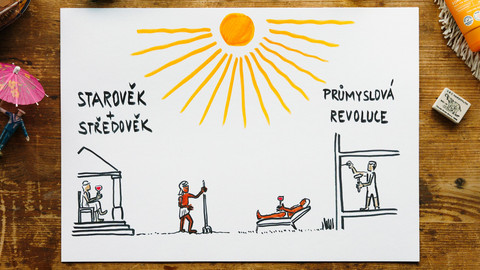 STAROVĚK
+
STŘEDOVĚK
PRŮMYSLOVÁ
REVOLUCE